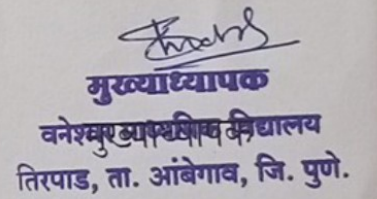 मुख्याध्यापक
वनेश्वर माध्यमिक विद्यालय
तिरपाड, ता. आंबेगाव, जि. पुणे.